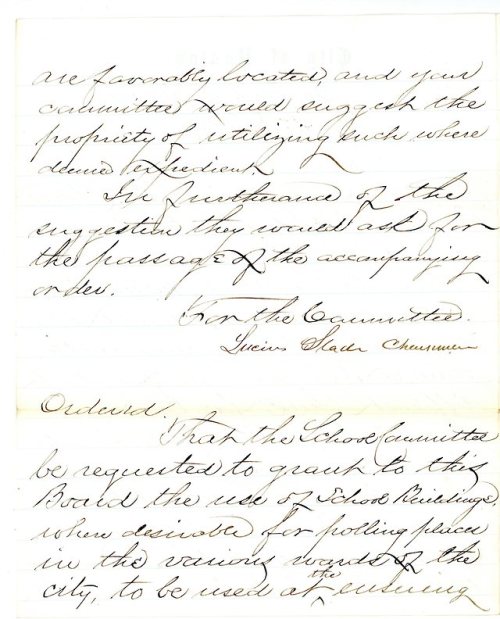 are favorably located, and your
committee would suggest the
propriety of utilizing such where
deemed expedient.
In furtherance of the
suggestion they would ask for
the passage of the accompanying
order.
For the Committee.
Lucius Slade Chairman
Ordered.
That the School Committee
be requested to grant to this
Board the use of School Buildings
when desirable for polling places
in the various wards of the
city, to be used at the ensuing